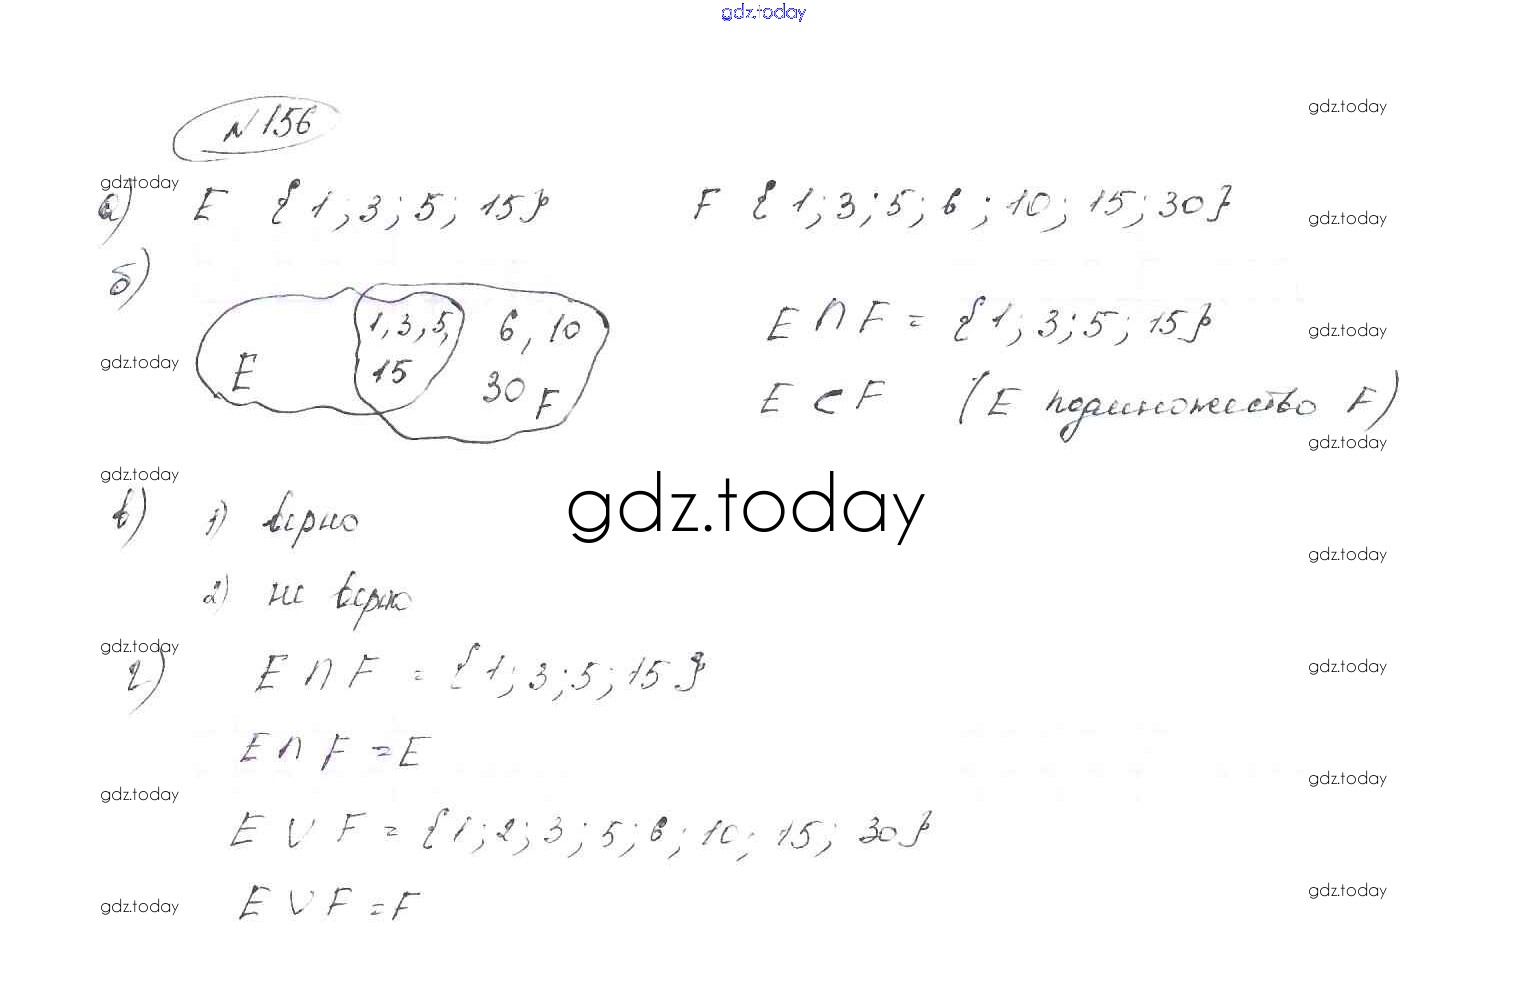 gdz.today
N 156
gdz.today
gdz.today
а) E {1; 3; 5; 15} F {1; 3; 5; 6; 10; 15; 30}
gdz.today
б)
1, 3, 5, 6, 10
E ∩ F = {1; 3; 5; 15}
gdz.today
gdz.today
E 15 30 F
E ⊂ F (E подмножество F)
gdz.today
gdz.today
в) 1) верно
gdz.today
gdz.today
2) не верно
gdz.today
г) E ∩ F = {1; 3; 5; 15}
gdz.today
E ∩ F = E
gdz.today
gdz.today
E ∪ F = {1; 2; 3; 5; 6; 10; 15; 30}
gdz.today
gdz.today
E ∪ F = F